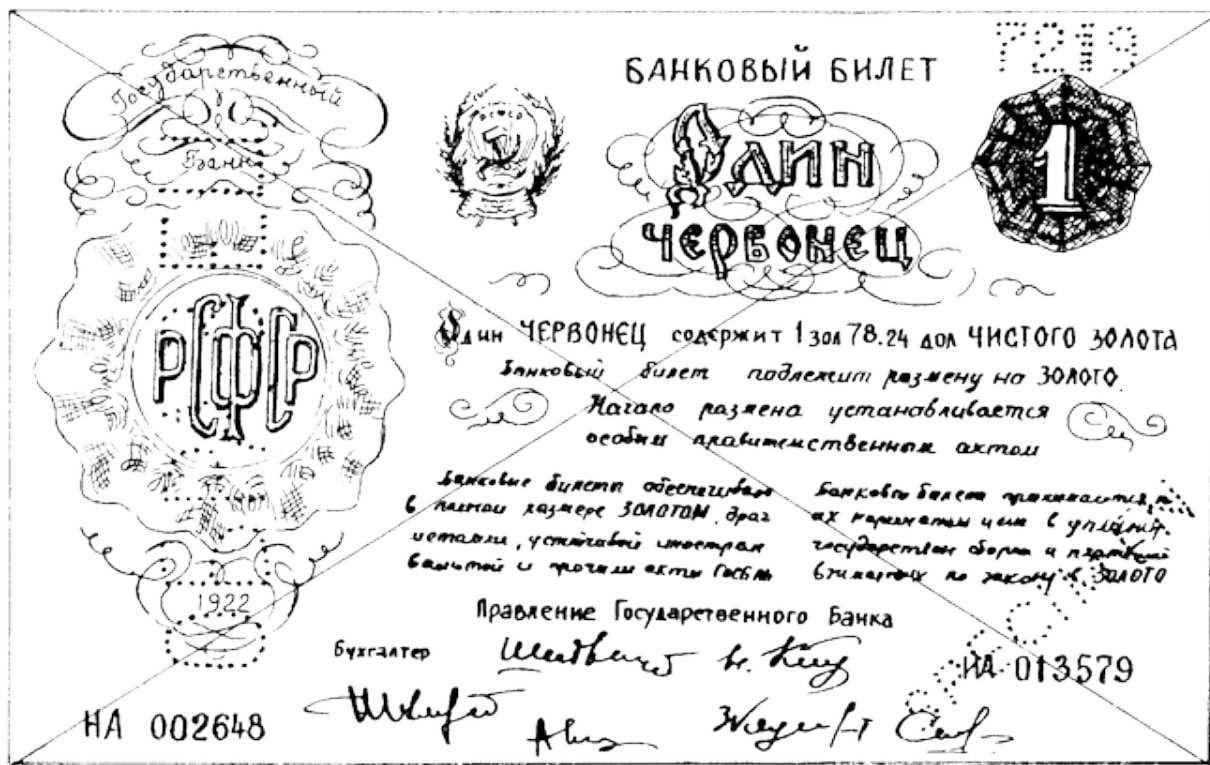 Государственный
Банк
РСФСР
1922
НА 002648
7219
БАНКОВЫЙ БИЛЕТ
РСФСР
ОДИН
ЧЕРВОНЕЦ
1
Один ЧЕРВОНЕЦ содержит 1 зол 78.24 дол ЧИСТОГО ЗОЛОТА
Банковый билет подлежит размену на ЗОЛОТО.
Начало размена устанавливается
особым правительственным актом
Банковые билеты обеспечиваю
в полном размере ЗОЛОТОМ, драг
металли, устойчивой иностран
валютой и прочими
Банковые билета принимаются
их нарицатель цене в уплату
государствен сборов и платежей
взимаемых по закону в ЗОЛОТО
Правление Государственного Банка
Бухгалтер
НА 013579